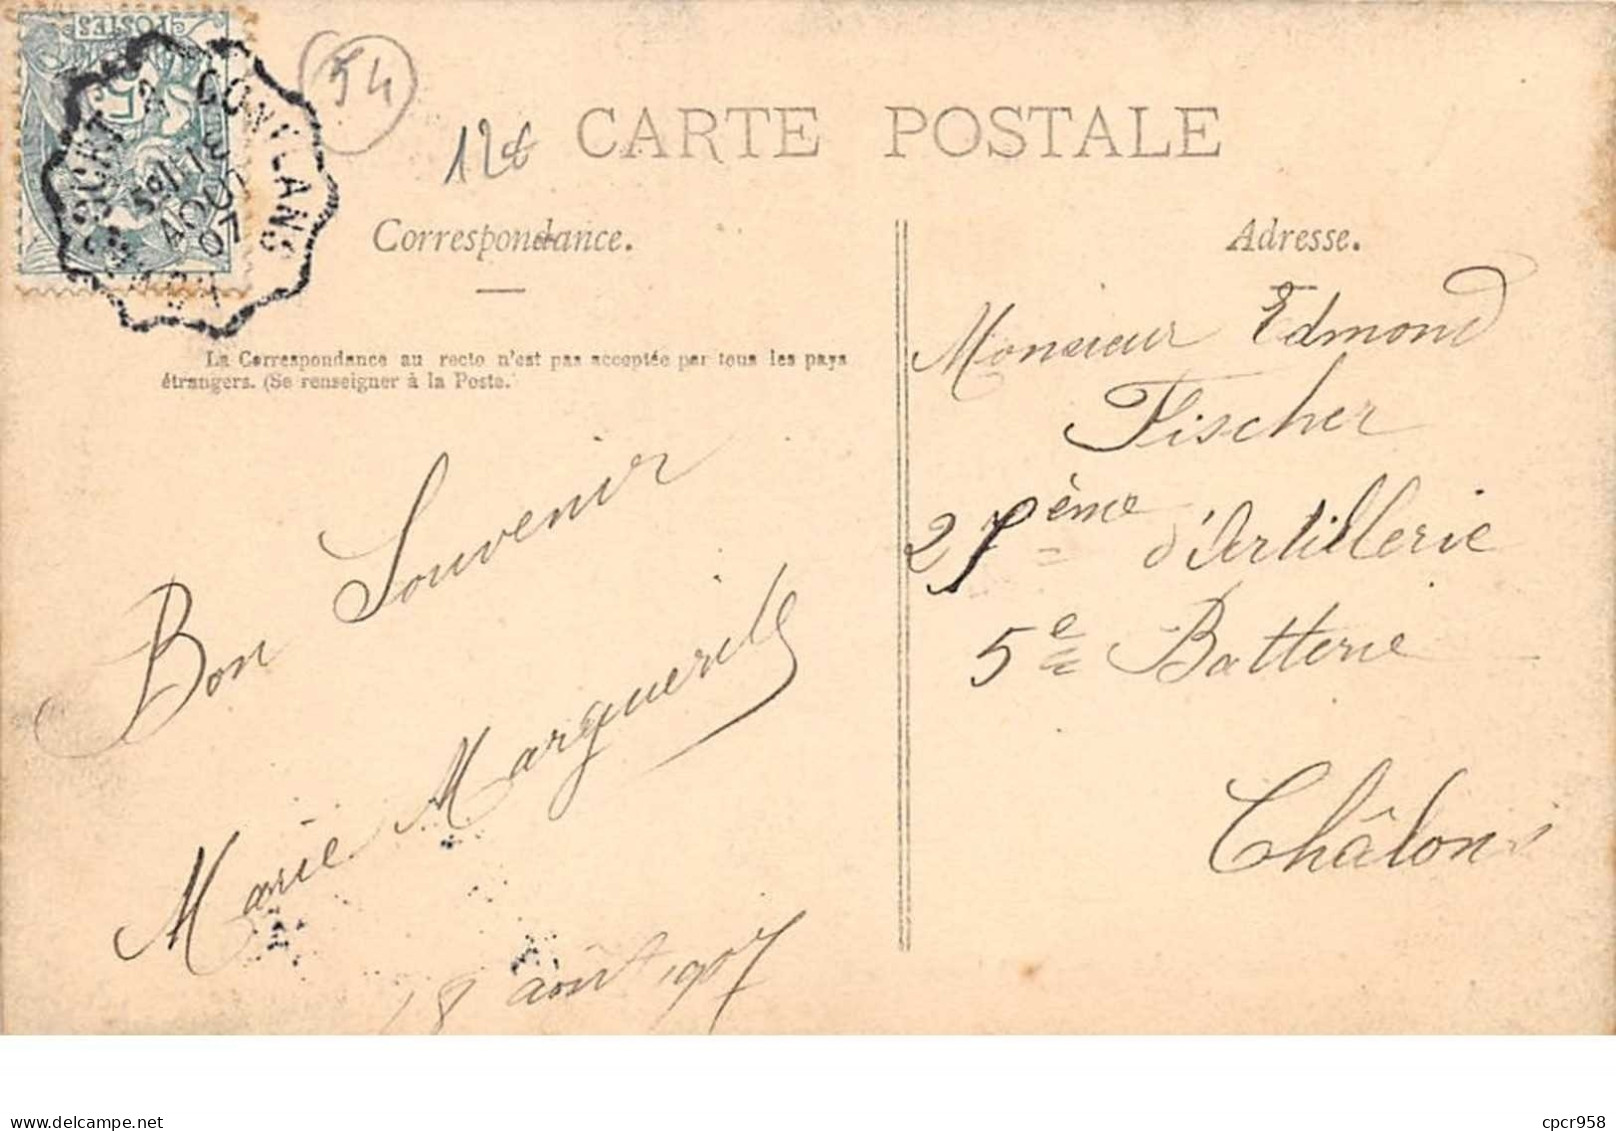 POSTES
A CONFLANS
AOUT
07
54
12€
CARTE POSTALE
Correspondance.
Adresse.
La Correspondance au recto n'est pas acceptée par tous les pays
étrangers. (Se renseigner à la Poste.
Bon Souvenir
Marie Marguerite
18 août 1907
Monsieur Edmond
Fischer
27ème d'Artillerie
5e Batterie
Châlons
cpcr958